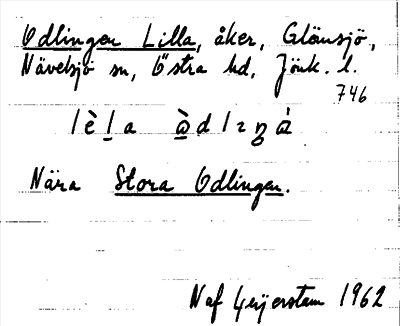 Odlingen Lilla, åker, Glänsjö,
Nävelsjö sn, Östra hd, Jönk. l.
746
lèla òdlıŋá
Nära Stora Odlingen.
Naf Geijerstam 1962